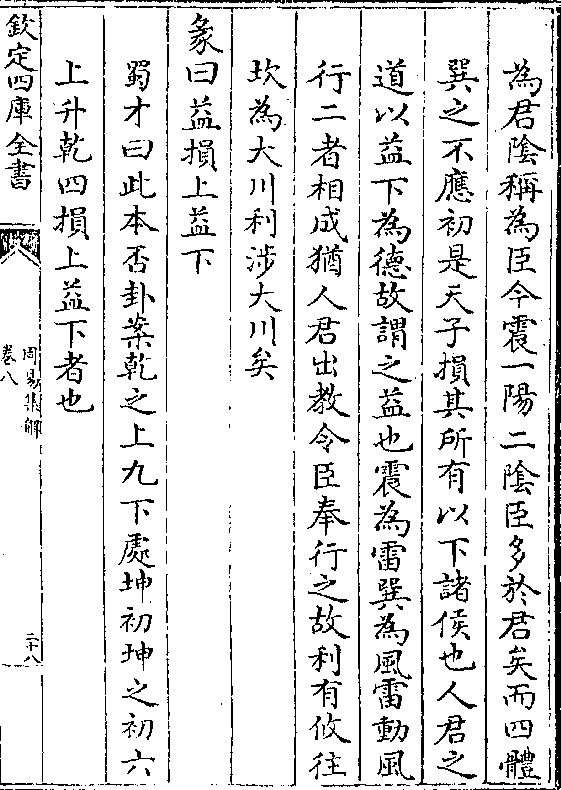 為君陰稱為臣今震一陽二陰臣多於君矣而四體
巽之不應初是天子損其所有以下諸侯也人君之
道以益下為德故謂之益也震為雷巽為風雷動風
行二者相成猶人君出教令臣奉行之故利有攸往
坎為大川利涉大川矣
彖曰益損上益下
蜀才曰此本否卦案乾之上九下處坤初坤之初六
上升乾四損上益下者也
欽定四庫全書
周易集解
卷八
二十八